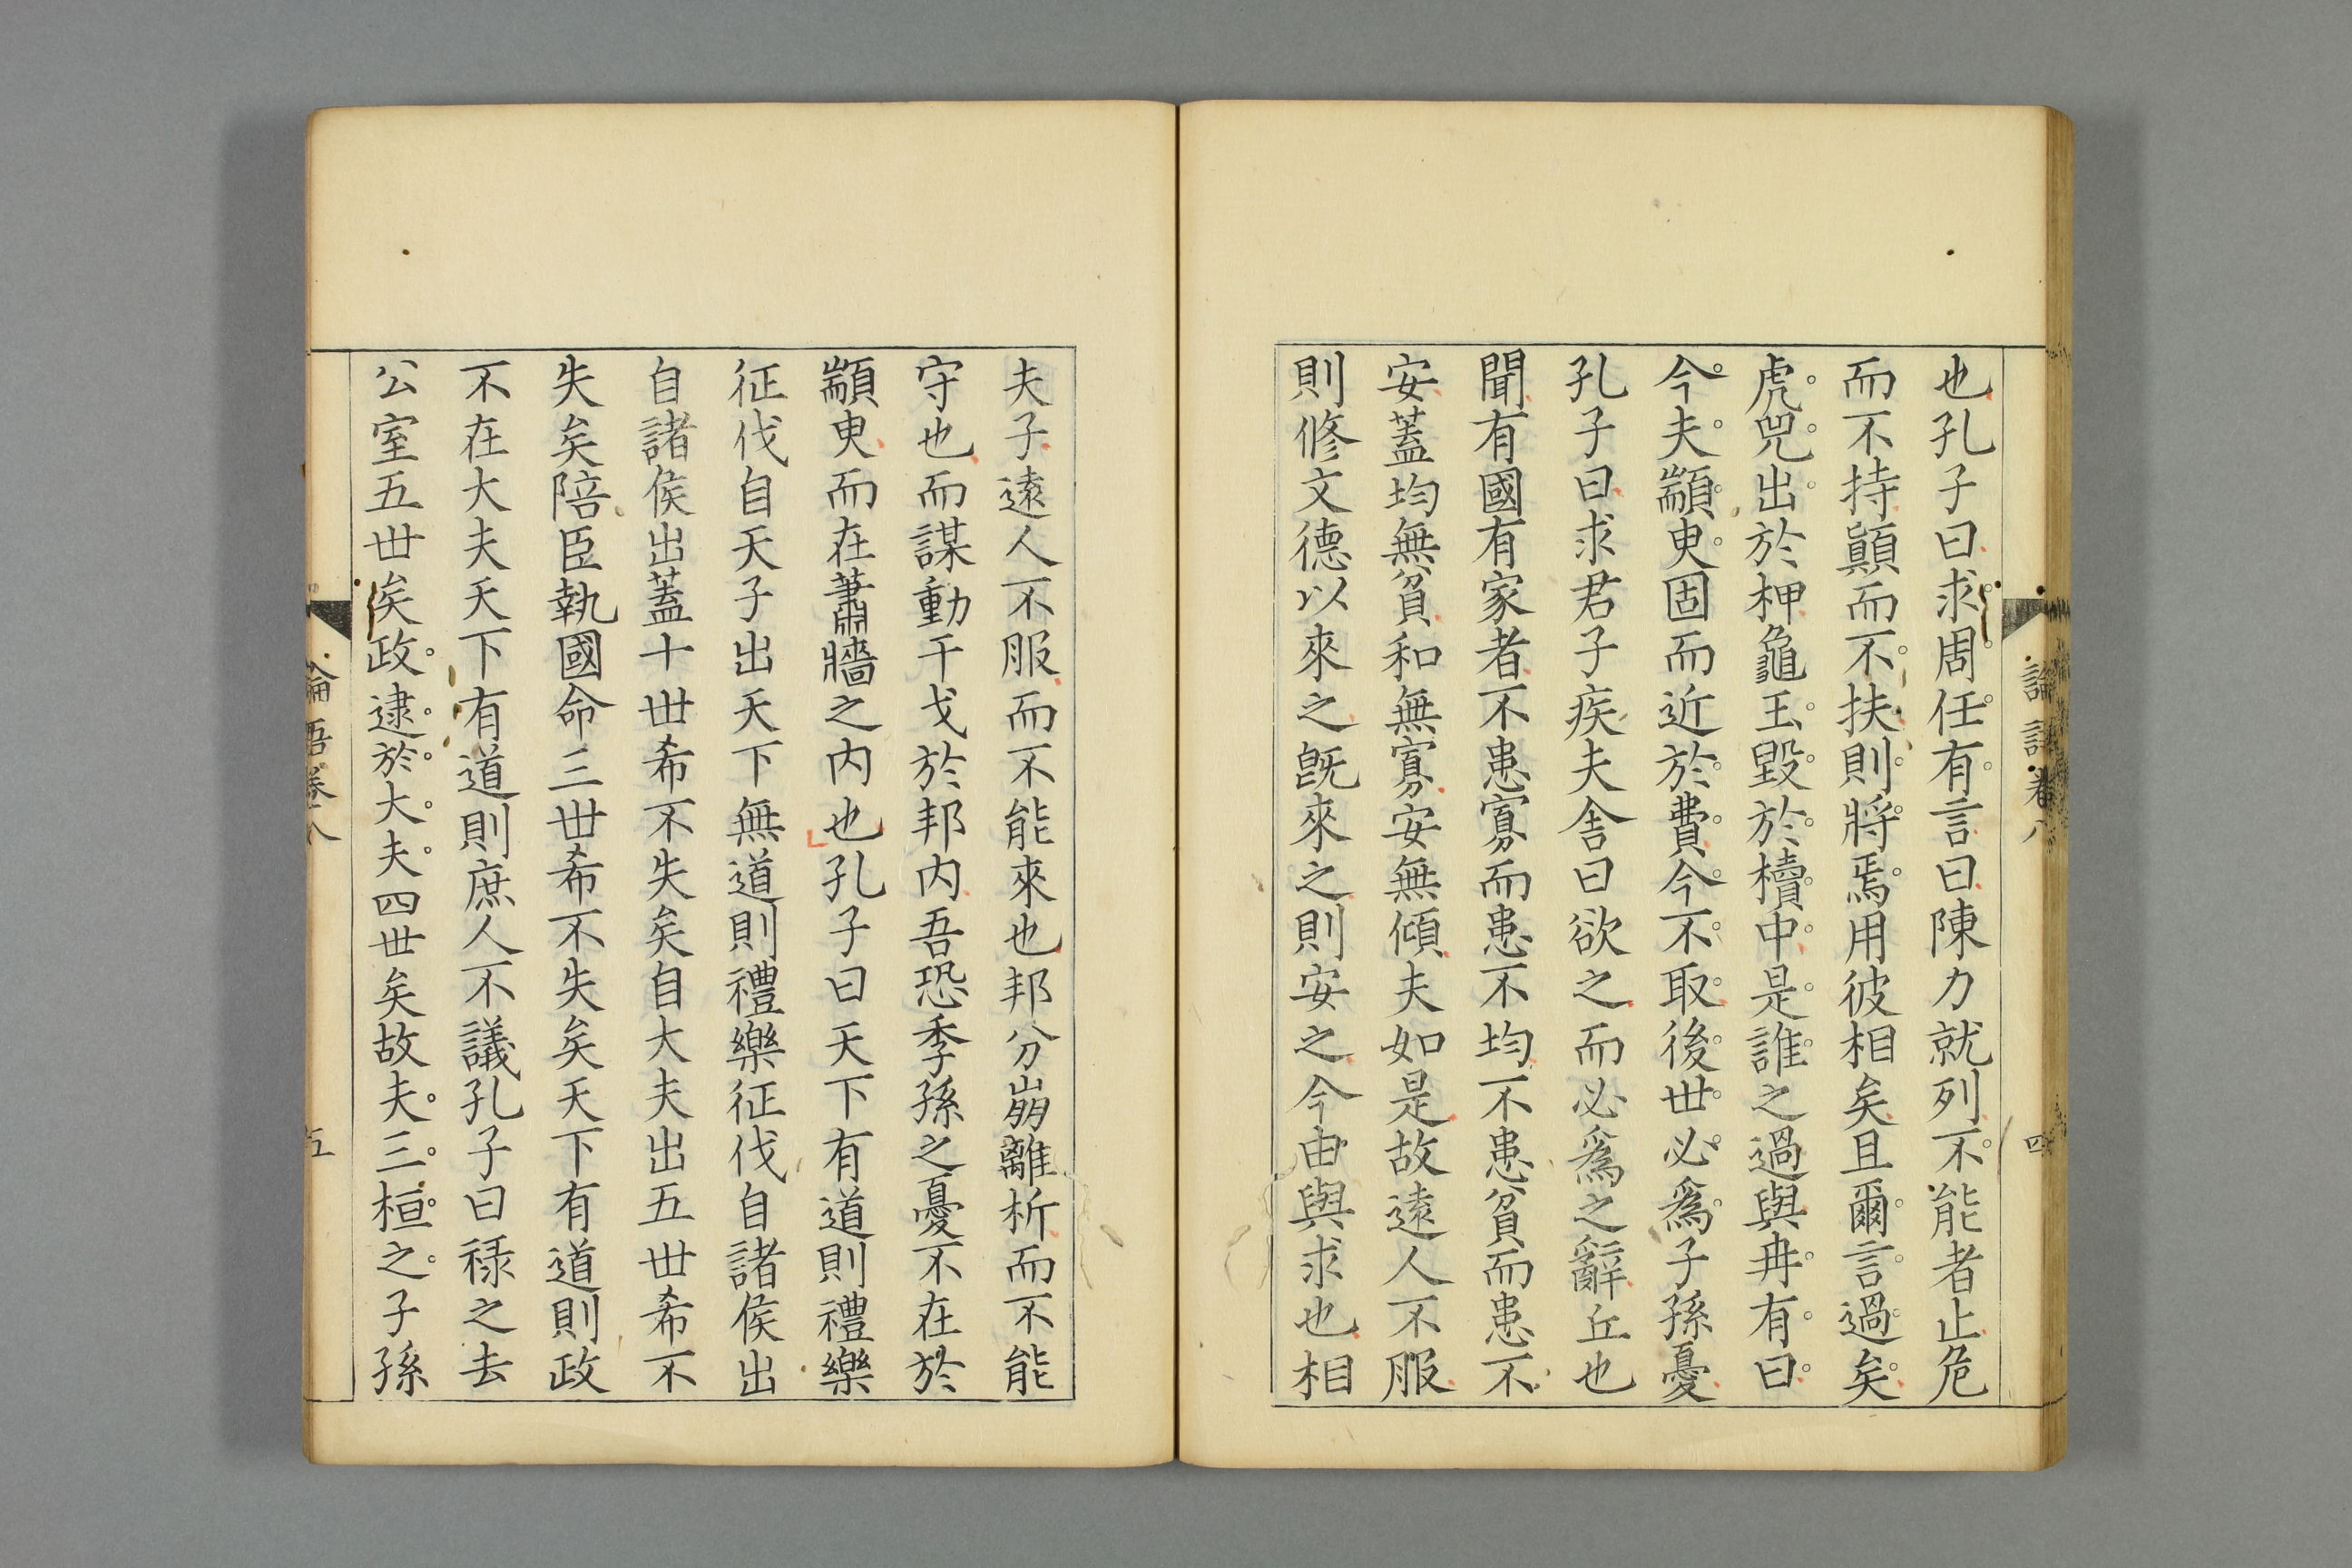 論語卷八
四
也孔子曰求周任有言曰陳力就列不能者止危
而不持顚而不扶則將焉用彼相矣且爾言過矣
虎兕出於柙龜玉毀於櫝中是誰之過與冉有曰
今夫顓臾固而近於費今不取後世必爲子孫憂
孔子曰求君子疾夫舍曰欲之而必爲之辭丘也
聞有國有家者不患寡而患不均不患貧而患不
安蓋均無貧和無寡安無傾夫如是故遠人不服
則修文德以來之旣來之則安之今由與求也相
夫子遠人不服而不能來也邦分崩離析而不能
守也而謀動干戈於邦内吾恐季孫之憂不在於
顓臾而在蕭牆之内也孔子曰天下有道則禮樂
征伐自天子出天下無道則禮樂征伐自諸侯出
自諸侯出蓋十世希不失矣自大夫出五世希不
失矣陪臣執國命三世希不失矣天下有道則政
不在大夫天下有道則庶人不議孔子曰祿之去
公室五世矣政逮於大夫四世矣故夫三桓之子孫
論語卷八
五